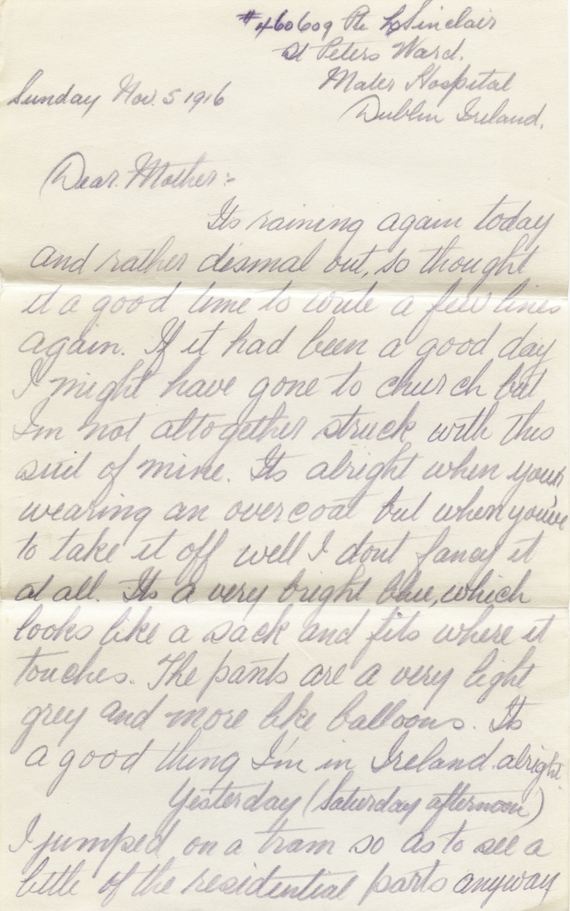 #460609 Pte L Sinclair
St Peters Ward.
Mater Hospital
Sunday Nov. 5 1916
Dublin Ireland.
Dear Mother:-
Its raining again today
and rather dismal out, so thought
it a good time to write a few lines
again. If it had been a good day
I might have gone to church but
I'm not altogether struck with this
suit of mine. Its alright when your
wearing an overcoat but when you've
to take it off well I dont fancy it
at all. Its a very bright blue, which
looks like a sack and fits where it
touches. The pants are a very light
grey and more like balloons. Its
a good thing I'm in Ireland alright.
Yesterday (Saturday afternoon)
I jumped on a tram so as to see a
little of the residential parts anyway